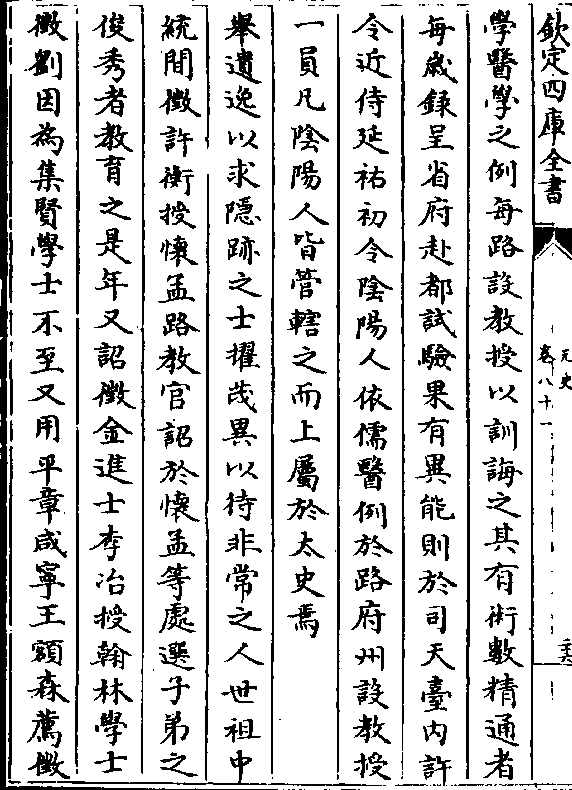 欽定四庫全書
元史
卷八十一
二十六
學醫學之例每路設教授以訓誨之其有術數精通者
每歲録呈省府赴都試驗果有異能則於司天臺内許
令近侍延祐初令陰陽人依儒醫例於路府州設教授
一員凡陰陽人皆管轄之而上屬於太史焉
舉遺逸以求隱跡之士擢茂異以待非常之人世祖中
統間徵許衡授懷孟路教官詔於懷孟等處選子弟之
俊秀者教育之是年又詔徵金進士李冶授翰林學士
徵劉因為集賢學士不至又用平章咸寧王額森薦徵